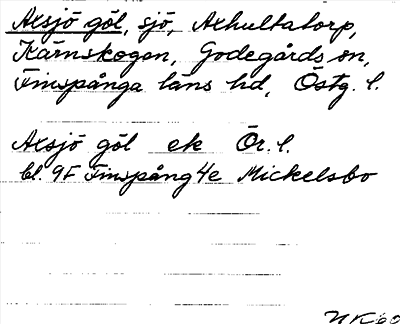 Axsjö göl, sjö, Axhultatorp,
Kärnskogen, Godegårds sn,
Finspånga läns hd, Östg. l.
Axsjö göl ek Ör. l.
bl. 9F Finspång 4e Mickelsbo
NK60